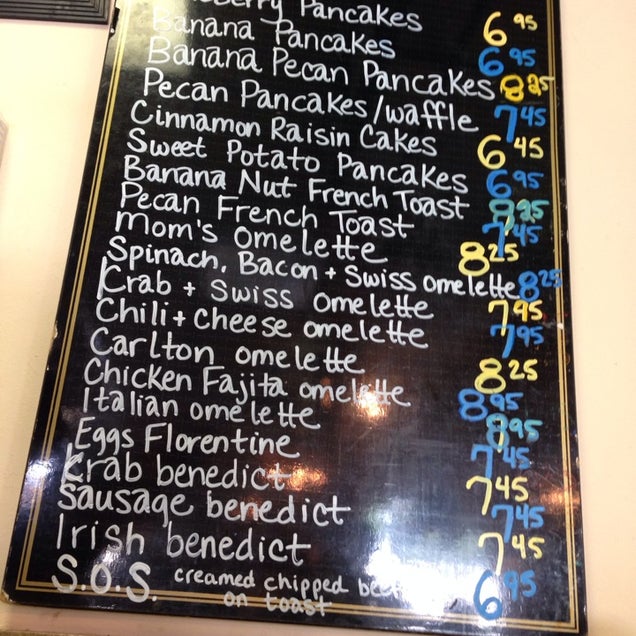 Pancakes 6 95
Banana Pancakes 6 95
Banana Pecan Pancakes 8 25
Pecan Pancakes/waffle 7 45
Cinnamon Raisin Cakes 6 45
Sweet Potato Pancakes 6 95
Banana Nut French Toast
Pecan French Toast 7 45
Mom's omelette 8 25
Spinach, Bacon + Swiss omelette 8 25
Crab + Swiss omelette 7 95
Chili + cheese omelette 7 95
Carlton omelette 8 25
Chicken Fajita omelette 8 95
Italian omelette 8 95
Eggs Florentine 7 45
Crab benedict 7 45
Sausage benedict 7 45
Irish benedict 7 45
S.O.S. creamed chipped beef 6 95
on toast